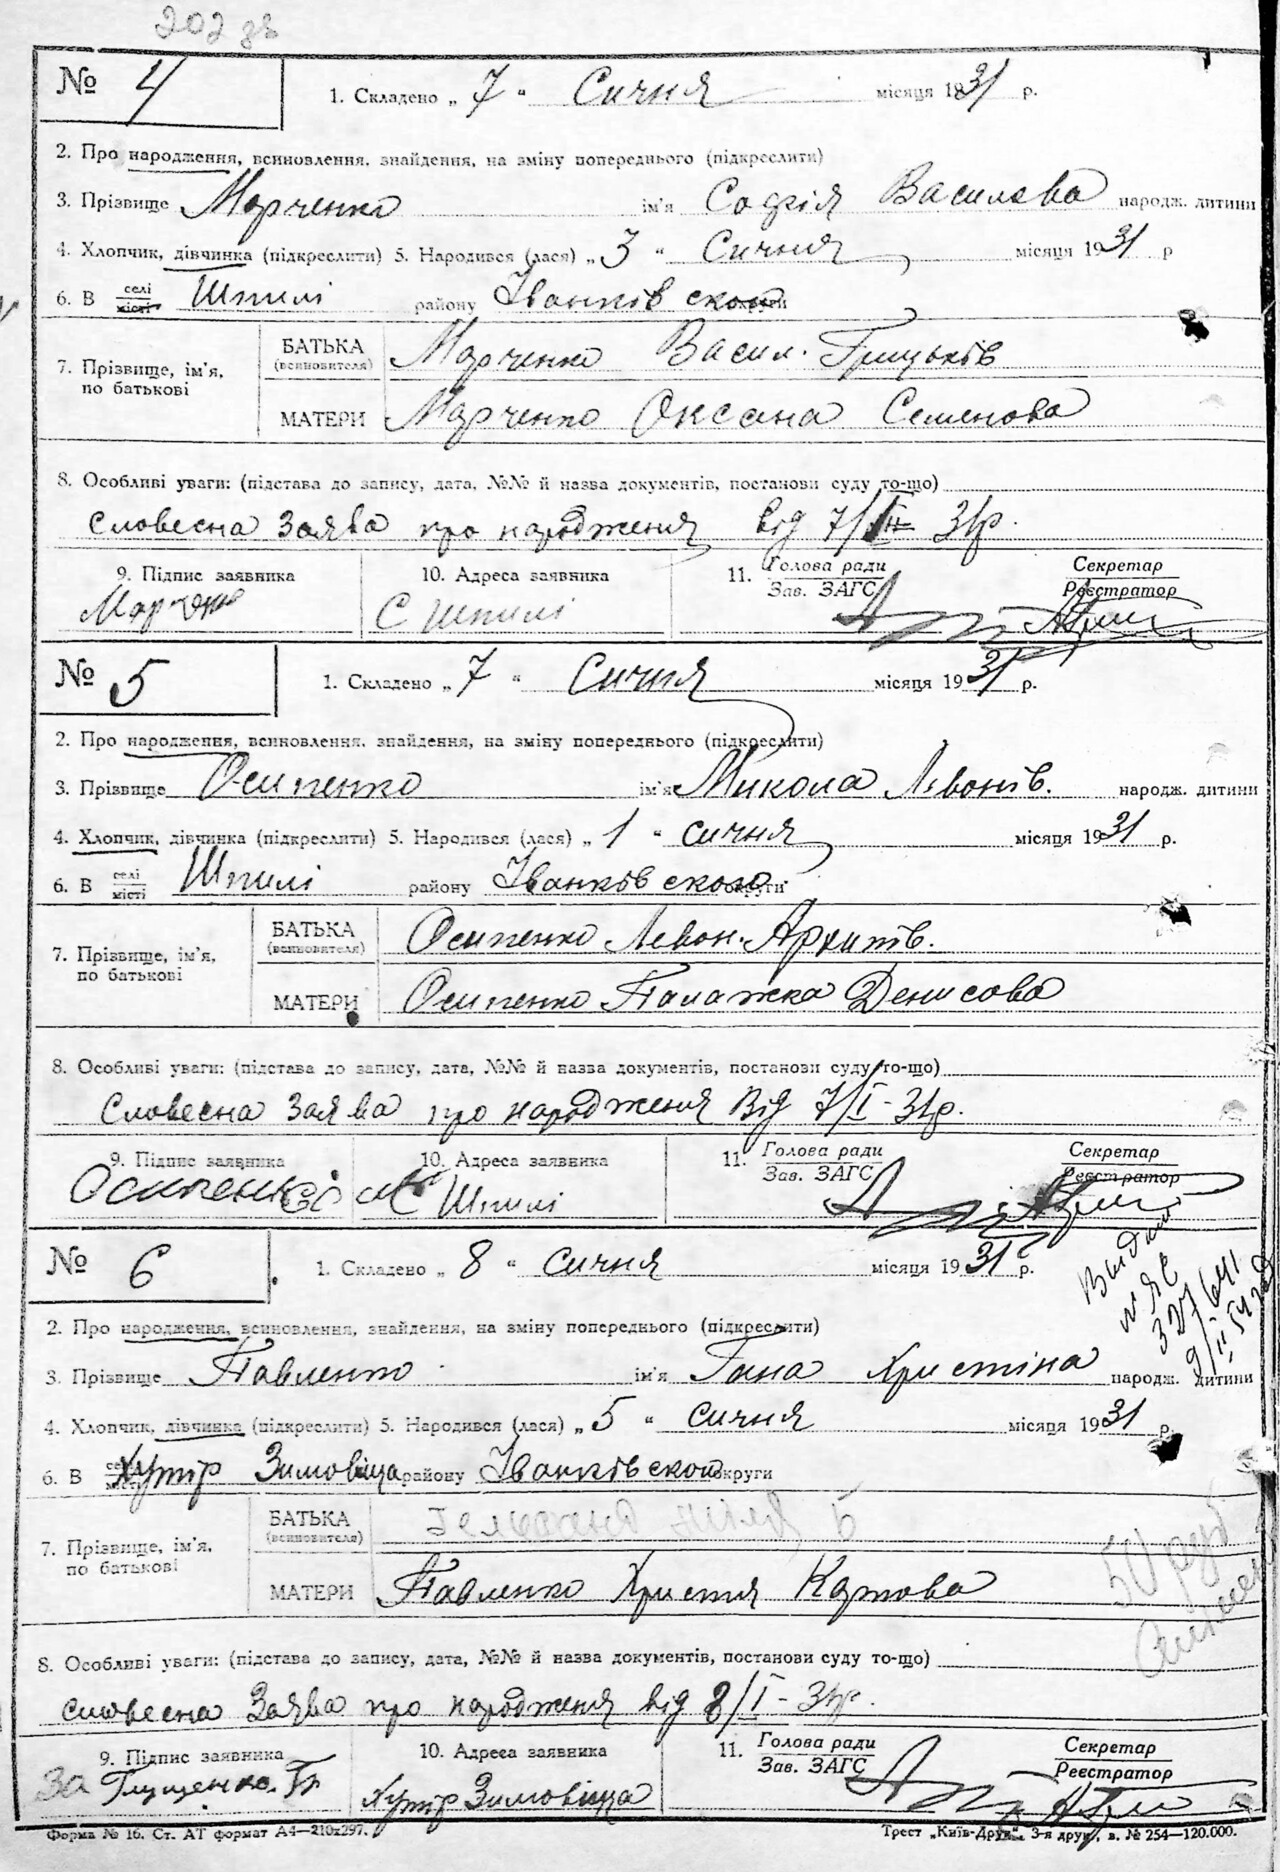 202 зв
№ 4 1. Складено „ 7 “ Сичня місяця 1931 р.
2. Про народження, всиновлення. знайдення, на зміну попереднього (підкреслити)
3. Прізвище Марченко ім'я Софія Василева народж. дитини
4. Хлопчик, дівчинка (підкреслити) 5. Народився (лася) „ 3 “ Сичня місяця 1931 р
6. В селі місті Шпилі району Іванківского округи
7. Прізвище, ім'я, по батькові
БАТЬКА (всиновителя) Марченко Васил. Грицьків
МАТЕРИ Марченко Оксана Семенова
8. Особливі уваги: (підстава до запису, дата, №№ й назва документів, постанови суду то-що)
Словесна заява про народження від 7/I 31р.
9. Підпис заявника 10. Адреса заявника 11. Голова ради Зав. ЗАГС Секретар Реєстратор
Марченко С Шпилі
№ 5 1. Складено „ 7 “ Сичня місяця 1931 р.
2. Про народження, всиновлення. знайдення, на зміну попереднього (підкреслити)
3. Прізвище Осипенко ім'я Микола Левонів. народж. дитини
4. Хлопчик, дівчинка (підкреслити) 5. Народився (лася) „ 1 “ сичня місяця 1931 р.
6. В селі місті Шпилі району Іванківского округи
7. Прізвище, ім'я, по батькові
БАТЬКА (всиновителя) Осипенко Левон. Архипів.
МАТЕРИ Осипенко Палажка Денисова
8. Особливі уваги: (підстава до запису, дата, №№ й назва документів, постанови суду то-що)
Словесна заява про народження від 7/I - 31р.
9. Підпис заявника 10. Адреса заявника 11. Голова ради Зав. ЗАГС Секретар Реєстратор
Осипенко С Шпилі
№ 6 1. Складено „ 8 “ сичня місяця 1931 р.
2. Про народження, всиновлення, знайдення, на зміну попереднього (підкреслити)
3. Прізвище Павленко ім'я Гана Христіна народж. дитини
4. Хлопчик, дівчинка (підкреслити) 5. Народився (лася) „ 5 “ сичня місяця 1931 р.
6. В селі місті Хутір Зимовіща району Іванківского округи
7. Прізвище, ім'я, по батькові
БАТЬКА (всиновителя)
МАТЕРИ Павленко Христя Карпова
50 руб
8. Особливі уваги: (підстава до запису, дата, №№ й назва документів, постанови суду то-що)
словесна заява про народження від 8/I - 31р.
9. Підпис заявника 10. Адреса заявника 11. Голова ради Зав. ЗАГС Секретар Реєстратор
За Глущенко Хутір Зимовіща
Форма № 16. Ст. АТ формат А4—210x297. Трест „Київ-Друк“, 3-я друк., в. № 254—120.000.